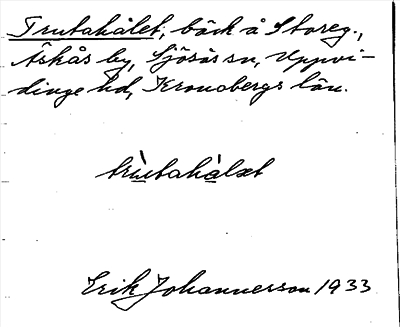 Trutahålet, bäck å Storeg.,
Äskås by, Sjösås sn, Uppvi-
dinge hd, Kronobergs län.
trùtahàlət
Erik Johannesson 1933